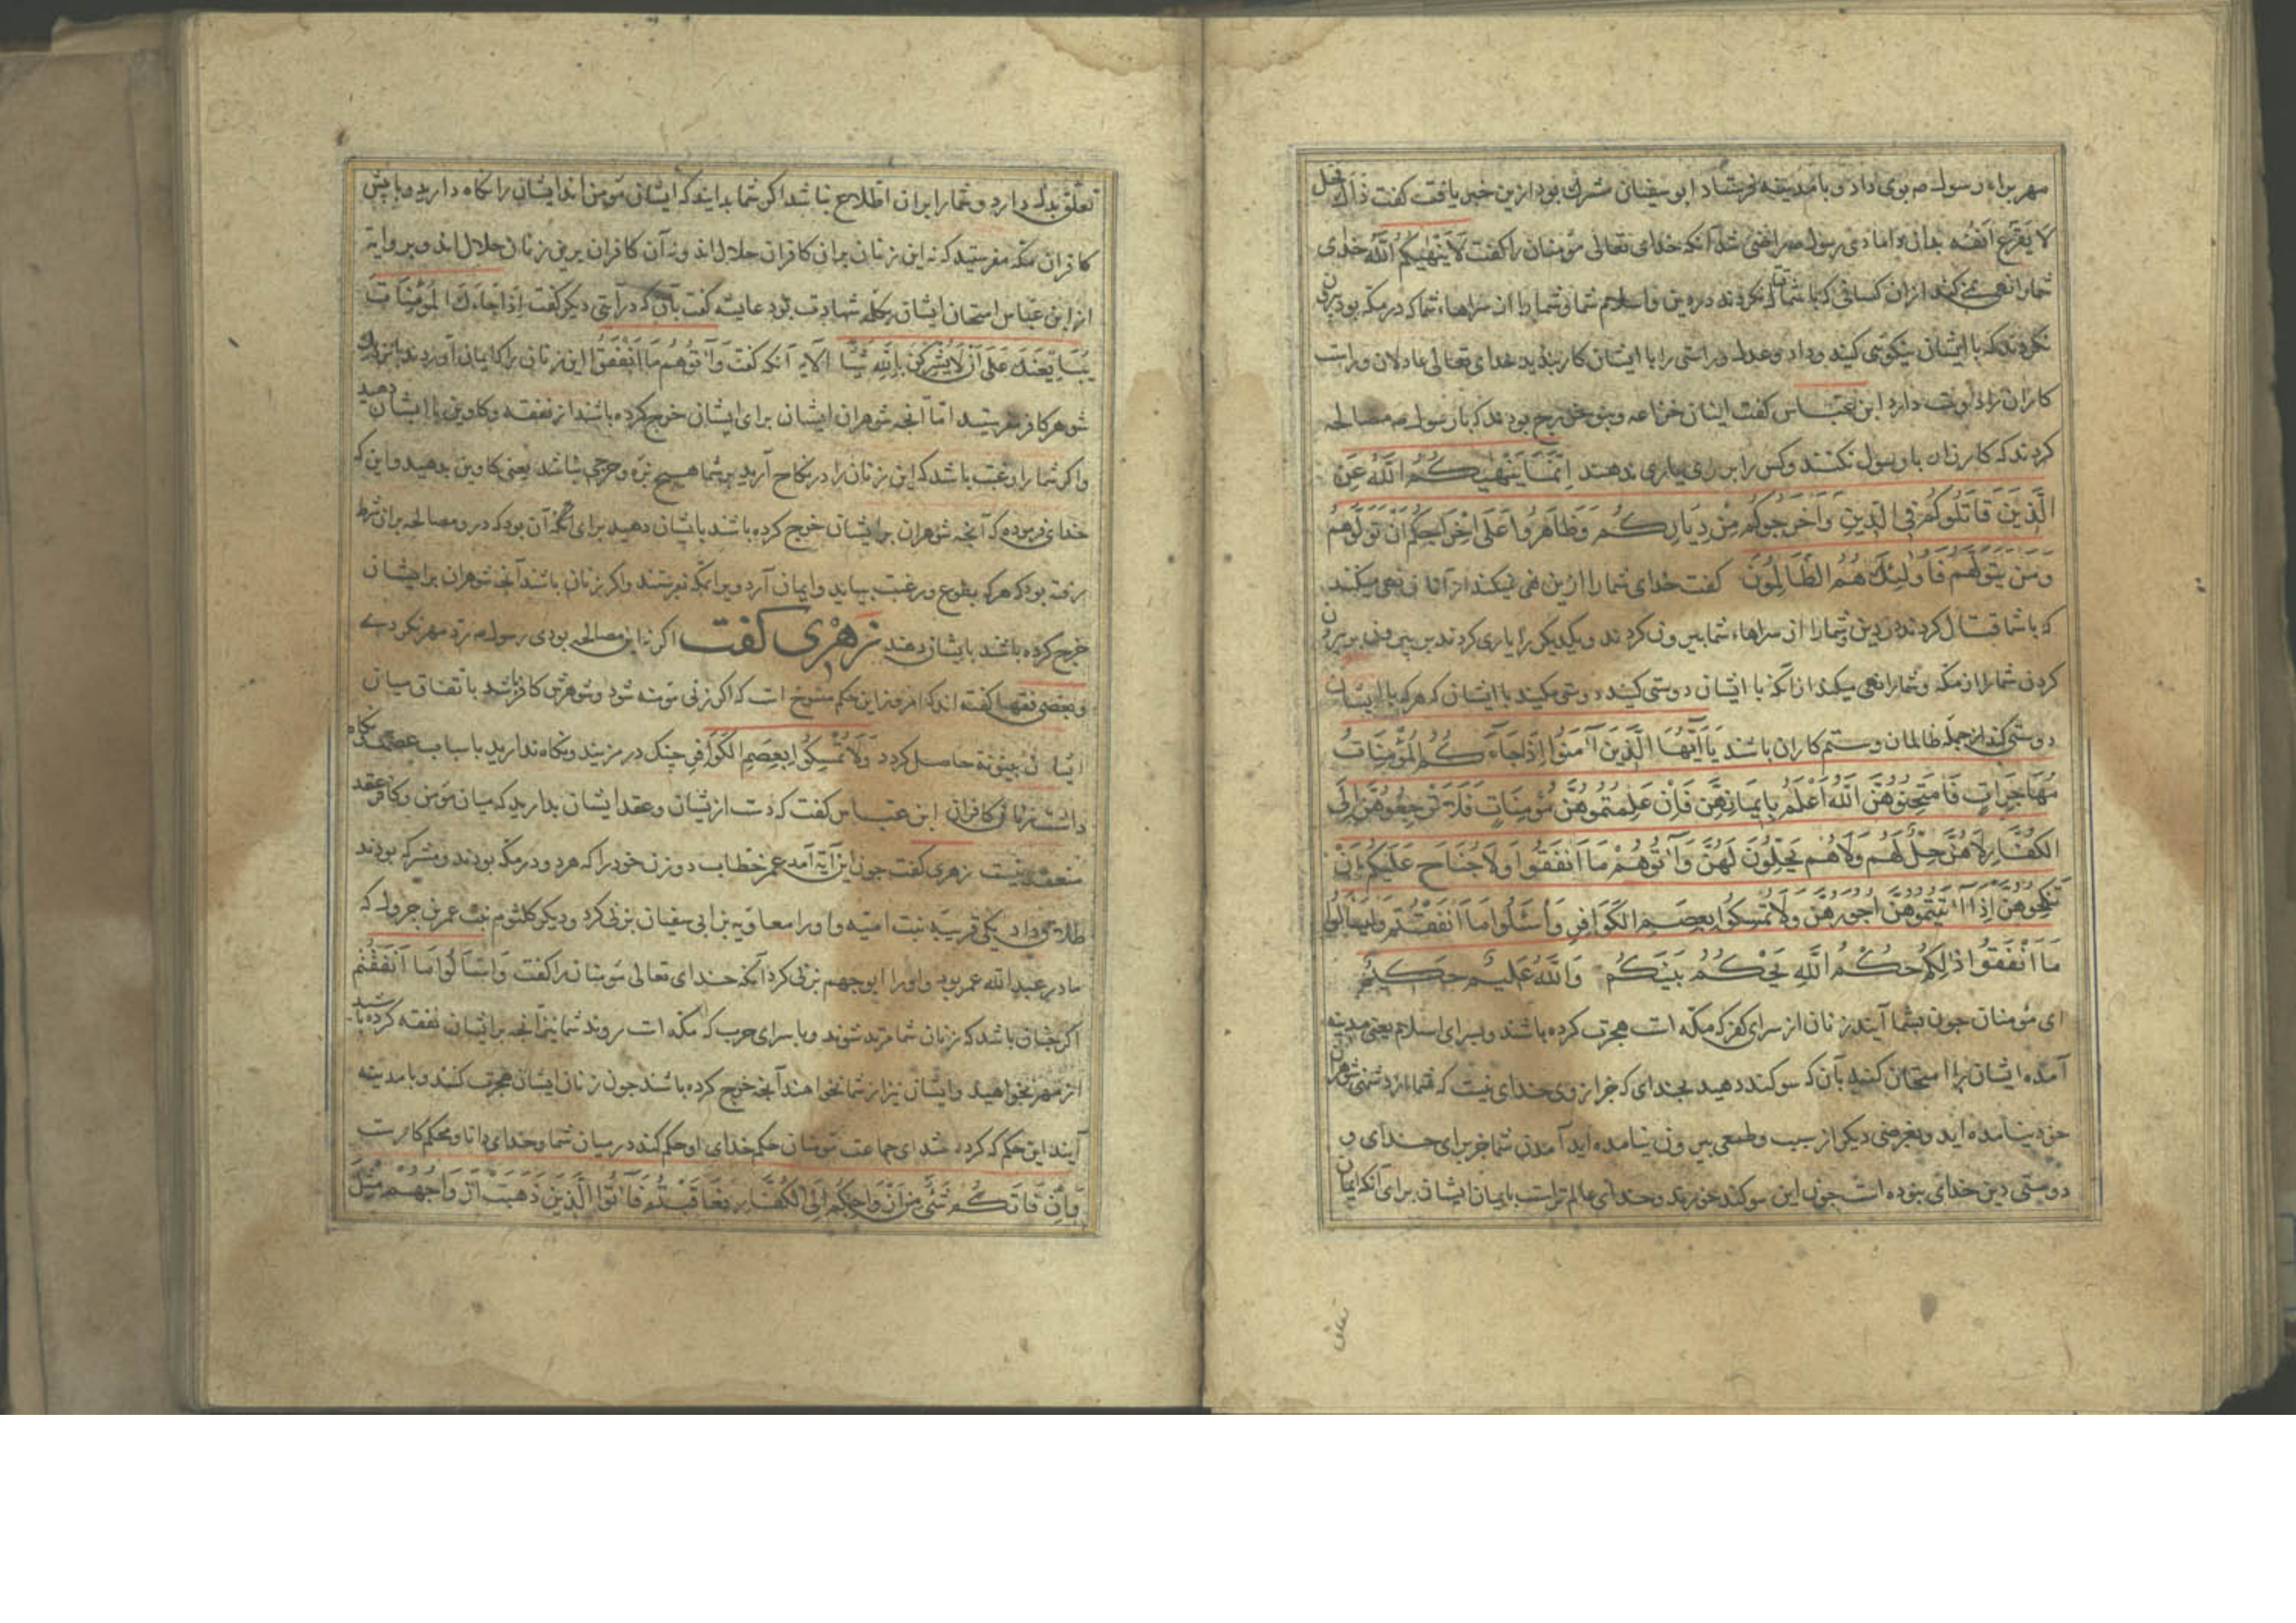 مهر براه رسول م بوی داد و بامدینه فرستاد ابو سفیان مشرك بود ازین خبر یافت کفت ذاك الفحل
لا یقرع انفه بدان دامادی رسول م راضی شد آنکه خدای تعالی مؤمنان را کفت لَا يَنْهٰيكُمُ اللّٰهُ خدای
شما را نهی نمی کند از ان کسانی که با شما قتال نکردند در دین و اسلام شما و شما را از سراهاء شما که در مکه بود بیرون
نکردند که با ایشان نیکوئی کنید و داد و عدل و راستی را با ایشان کار بندید خدای تعالی عادلان و راست
کاران را دوست دارد ابن عبّاس کفت ایشان خزاعه و بنو مدلج بودند که با رسول م مصالحه
کردند که کارزار با رسول نکنند و کس را بر وی یاری ندهند اِنَّمَا يَنْهٰيكُمُ اللّٰهُ عَنِ
الَّذِينَ قَاتَلُوكُمْ فِي الدِّينِ وَاَخْرَجُوكُمْ مِنْ دِيَارِكُمْ وَظَاهَرُوا عَلَى اِخْرَاجِكُمْ اَنْ تَوَلَّوْهُمْ
وَمَنْ يَتَوَلَّهُمْ فَاُولٰئِكَ هُمُ الظَّالِمُونَ کفت خدای شما را ازین نهی نمیکند از آنان نهی میکند
که با شما قتال کردند در دین و شما را از سراهاء شما بیرون کردند و یکدیکر را یاری کردند بر بیرون
کردن شما را از مکه و شما را نهی میکند از انکه با ایشان دوستی کنید و دوستی مکنید با ایشان که هر که با ایشان
دوستی کند از جمله ظالمان و ستم کاران باشد يَا اَيُّهَا الَّذِينَ آمَنُوا اِذَا جَاءَكُمُ الْمُؤْمِنَاتُ
مُهَاجِرَاتٍ فَامْتَحِنُوهُنَّ اَللّٰهُ اَعْلَمُ بِاِيمَانِهِنَّ فَاِنْ عَلِمْتُمُوهُنَّ مُؤْمِنَاتٍ فَلَا تَرْجِعُوهُنَّ اِلَى
الْكُفَّارِ لَا هُنَّ حِلٌّ لَهُمْ وَلَا هُمْ يَحِلُّونَ لَهُنَّ وَآتُوهُمْ مَا اَنْفَقُوا وَلَا جُنَاحَ عَلَيْكُمْ اَنْ
تَنْكِحُوهُنَّ اِذَا آتَيْتُمُوهُنَّ اُجُورَهُنَّ وَلَا تُمْسِكُوا بِعِصَمِ الْكَوَافِرِ وَاسْئَلُوا مَا اَنْفَقْتُمْ وَلْيَسْئَلُوا
مَا اَنْفَقُوا ذٰلِكُمْ حُكْمُ اللّٰهِ يَحْكُمُ بَيْنَكُمْ وَاللّٰهُ عَلِيمٌ حَكِيمٌ
ای مؤمنان جون بشما آیند زنان از سرای کفر که مکه است هجرت کرده باشند و بسرای اسلام یعنی مدینه
آمده ایشان را امتحان کنید بآن که سوکند دهید بخدای که جز از وی خدای نیست که شما از دشمنی شوهران
خود نیامده اید و بغرضی دیکر از سبب و طمعی بیرون نیامده اید آمدن شما جز برای خدای و
دوستی دین خدای نبوده است جون این سوکند خورند و خدای عالم تر است بایمان ایشان برای آنکه ایمان
تعلق بدل دارد و شما را بران اطلاع نباشد اکر شما بدانید که ایشان مؤمن اند ایشان را نکاه دارید و با پیش
کافران مکه مفرستید که نه این زنان بران کافران حلال اند و نه آن کافران برین زنان حلال اند و بروایت
از ابن عبّاس امتحان ایشان بکلمه شهادت بود عایشه کفت بآن که در آیتی دیکر کفت اِذَا جَاءَكَ الْمُؤْمِنَاتُ
يُبَايِعْنَكَ عَلَى اَنْ لَا يُشْرِكْنَ بِاللّٰهِ شَيْئًا الآیه آنکه کفت وَآتُوهُمْ مَا اَنْفَقُوا این زنان را که ایمان آوردند با نزدیك
شوهر کافر مفرستید امّا آنجه شوهران ایشان برای ایشان خرج کرده باشند از نفقه و کاوین با ایشان دهید
واکر شما را رغبت باشد که این زنان را در نکاح آرید بر شما هیچ بزه و حرجی نباشد یعنی کاوین بدهید و این که
خدای فرموده که آنجه شوهران بر ایشان خرج کرده باشند بایشان دهید برای آنکه آن بود که در و مصالحه بران شرط
رفته بود که هر که بطوع و رغبت بیاید و ایمان آرد ویرا بمکه نفرستند و اکر زنان باشند آنجه شوهران بر ایشان
خرج کرده باشند بایشان دهند زهری کفت اکر نه این مصالحه بودی رسول م رد مهر نکردی
و بعضی فقها کفته اند که امروز این حکم منسوخ است که اکر زنی مؤمنه شود و شوهرش کافر باشد باتفاق میان
ایشان بینونة حاصل کردد وَلَا تُمْسِكُوا بِعِصَمِ الْكَوَافِرِ جنك در مزنید و نکاه ندارید باسباب عصمت نکاه
داشت زنان کافران ابن عبّاس کفت که دست از ایشان و عقد ایشان بدارید که میان مؤمن و کافر عقد
منعقد نیست زهری کفت جون این آیة آمد عمر خطاب دو زن خود را که هر دو در مکه بودند و مشرکه بودند
طلاق داد یکی قریبه بنت امیّه و او را معاویه بن ابی سفیان بزنی کرد و دیکر کلثوم بنت عمر بن جرول که
مادر عبد الله عمر بود و او را ابو جهم بزنی کرد آنکه خدای تعالی مؤمنان را کفت وَاسْئَالُوا مَا اَنْفَقْتُمْ
اکر جنان باشد که زنان شما مرتد شوند و با سرای حرب که مکه است روند شما نیز آنجه بر ایشان نفقه کرده باشید
از مهر بخواهید و ایشان نیز از شما بخواهند آنجه خرج کرده باشند جون زنان ایشان هجرت کنند و با مدینه
آیند این حکم که کرده شد ای جماعت مؤمنان حکم خدای او حکم کند در میان شما و خدای دانا و محکم کار است
وَاِنْ فَاتَكُمْ شَيْءٌ مِنْ اَزْوَاجِكُمْ اِلَى الْكُفَّارِ فَعَاقَبْتُمْ فَآتُوا الَّذِينَ ذَهَبَتْ اَزْوَاجُهُمْ مِثْلَ